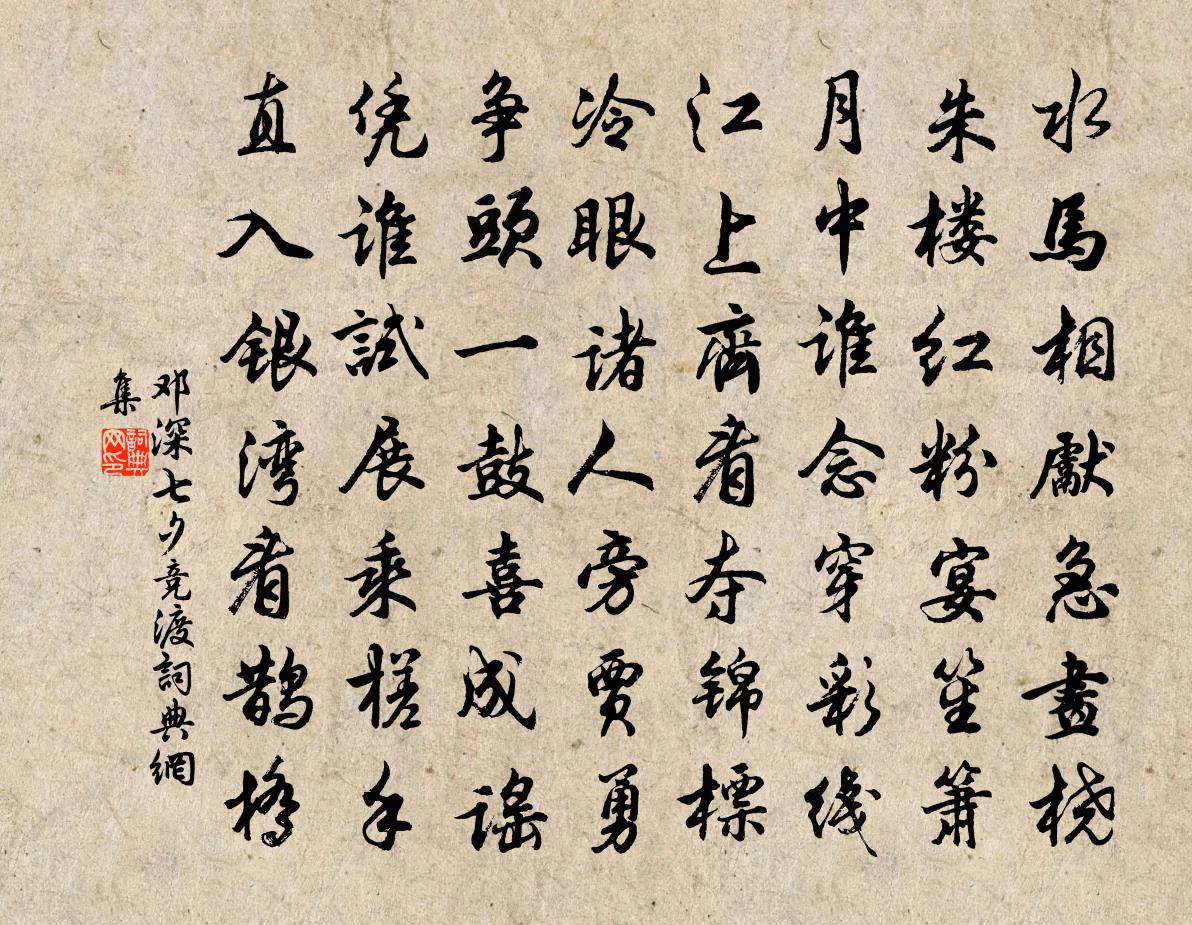 水馬相獻急畫桡
朱楼红粉宴笙箫
月中谁念穿彩线
江上齊看夺锦標
冷眼诸人旁贾勇
争頭一鼓喜成谣
凭谁試展乘槎手
直入銀湾看鹊橋
邓深七夕竞渡詞典網
集
詞典
网印